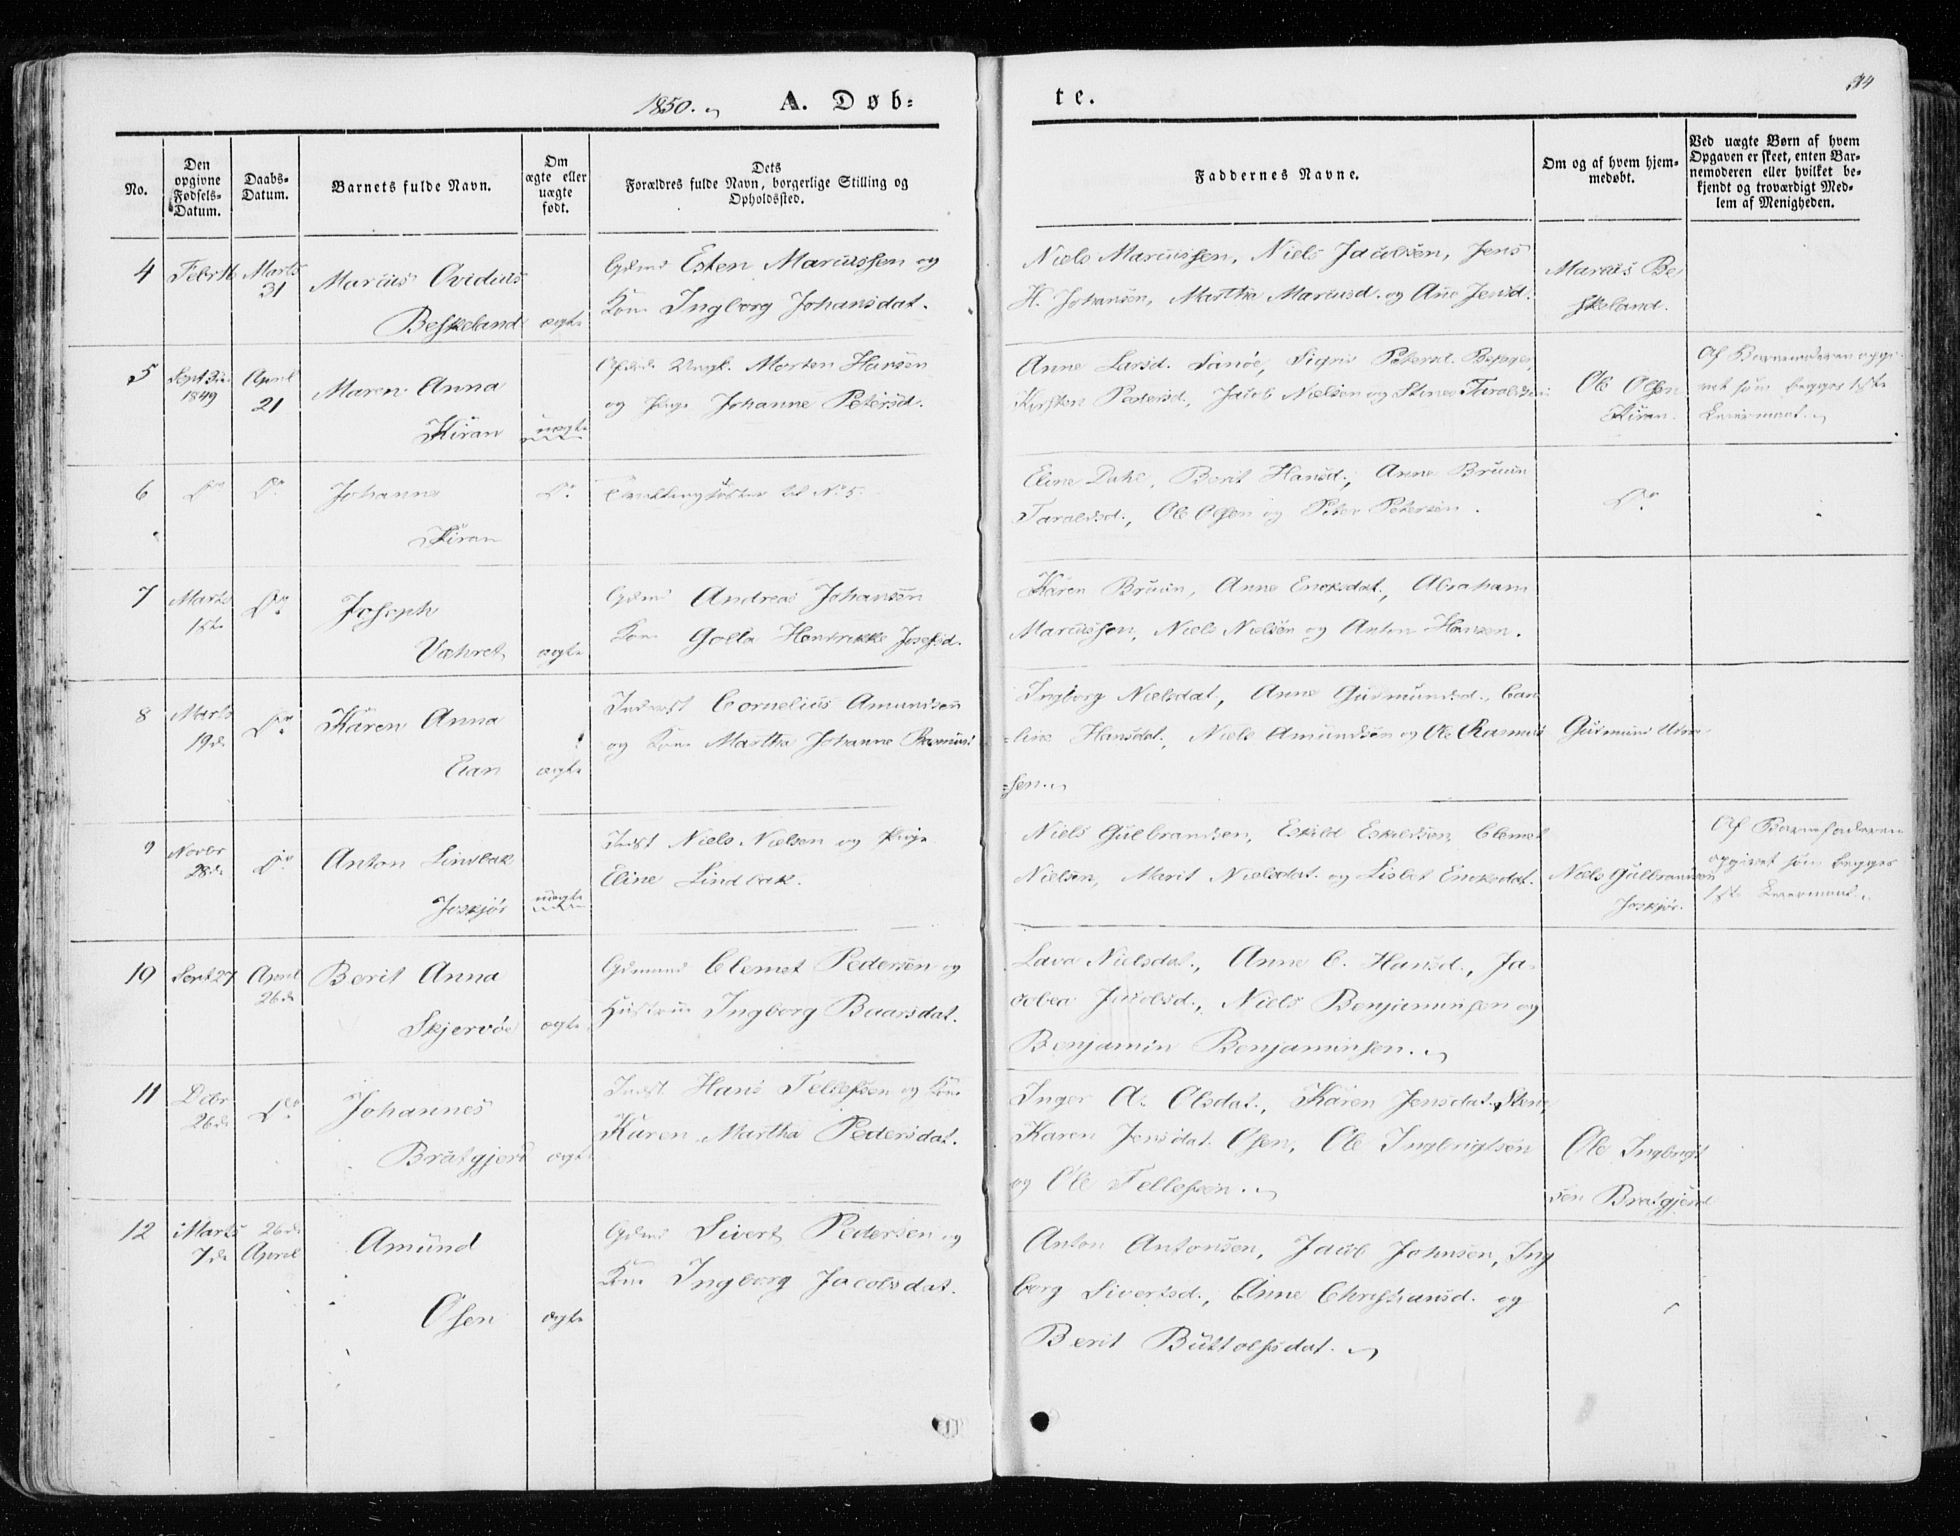 1850. A. Døb-
te. 34
No.
Den opgivne Fødsels-Datum.
Daabs-Datum.
Barnets fulde Navn.
Om ægte eller uægte født.
Dets
Forældres fulde Navn, borgerlige Stilling og
Opholdssted.
Faddernes Navne.
Om og af hvem hjem-
medøbt.
Ved uægte Børn af hvem
Opgaven er skeet, enten Bar-
nemoderen eller hvilket be-
kjendt og troværdigt Med-
lem af Menigheden.
4 Marts 31 Marius Ovidius
Beskeland ægte
Gdmd Esten Marcussen og
Kone Ingborg Johansdat.
Niels Marcussen, Niels Jacobsen, Jens
H. Johansen, Martha Marcusd. og Ane Jensd.
Marcus Be
skeland.
5 1849 April 21 Maren Anna
Kiran uægte
Ungk. Morten Hansen
og Pige Johanne Petersd.
Anne Larsd. Sanöe, Sigrid Petersd.
Kirsten Pedersd., Jacob Nielsen og Stine
Ole Olsen
Kiran.
Af Barnemoderen opgi-
vet som begges 1ste
Leiermaal.
6 Do Do Johanna
Kiran
Do Tvillingsøster til No 5.
Eline Dahl, Berit Hansd., Anne Bruun
Taraldsd., Ole Olsen og Peter Petersen.
Do
7 Marts Do Joseph
Væhret ægte
Gdmd Andreas Johansen
Kone Golla Hendrikke Josefsd.
Karen Bruun, Anne Ericksdat., Abraham
Marcussen, Niels Nielsen og Anton Hansen.
8 Marts 19de Do Karen Anna
Eian ægte
Inderst Cornelius Amundsen
og Kone Martha Johanne
Ingborg Nielsdat., Anne Gudmundsd., Caro
-line Hansdat., Niels Amundsen og Ole Rasmus
-sen.
Gudmund
9 Novbr 28de Do Anton Lindbak
Joskjør uægte
Indst Niels Nielsen og Pige
Eline Lindbak.
Niels Gulbrandsen, Eskild Eskildsen, Clemet
Nielsen, Marit Nielsdat. og Lisbet Ericksdat.
Niels Gulbrandsen
Joskjør.
Af Barnefaderen
opgivet som begges
1ste Leiermaal.
10 Sept 27 April 26de Berit Anna
Skjervöe ægte
Gdmand Clemet Pedersen og
Hustrue Ingborg Baarsdat.
Lava Nielsdat., Anne C. Hansd., Ja-
cobea Jacobsd., Niels Benjaminsen og
Benjamin Benjaminsen.
11 Decbr 26de Do Johannes
Bratgjerd ægte
Indst Hans Tellefsen og Kone
Karen Martha Pedersdat.
Inger A. Olsdat., Karen Jensdat.
Karen Jensdat. Osen, Ole Ingbrigtsen
og Ole Tellefsen.
Ole Ingbrigt
sen Bratgjerd
12 Marts 7de 26de April Amund
Osen ægte
Gdmd Sivert Pedersen og
Kone Ingborg Jacobsdat.
Anton Antonsen, Jacob Johnsen, Ing
borg Sivertsd., Anne Christiansd. og
Berit Buttolfsdat.